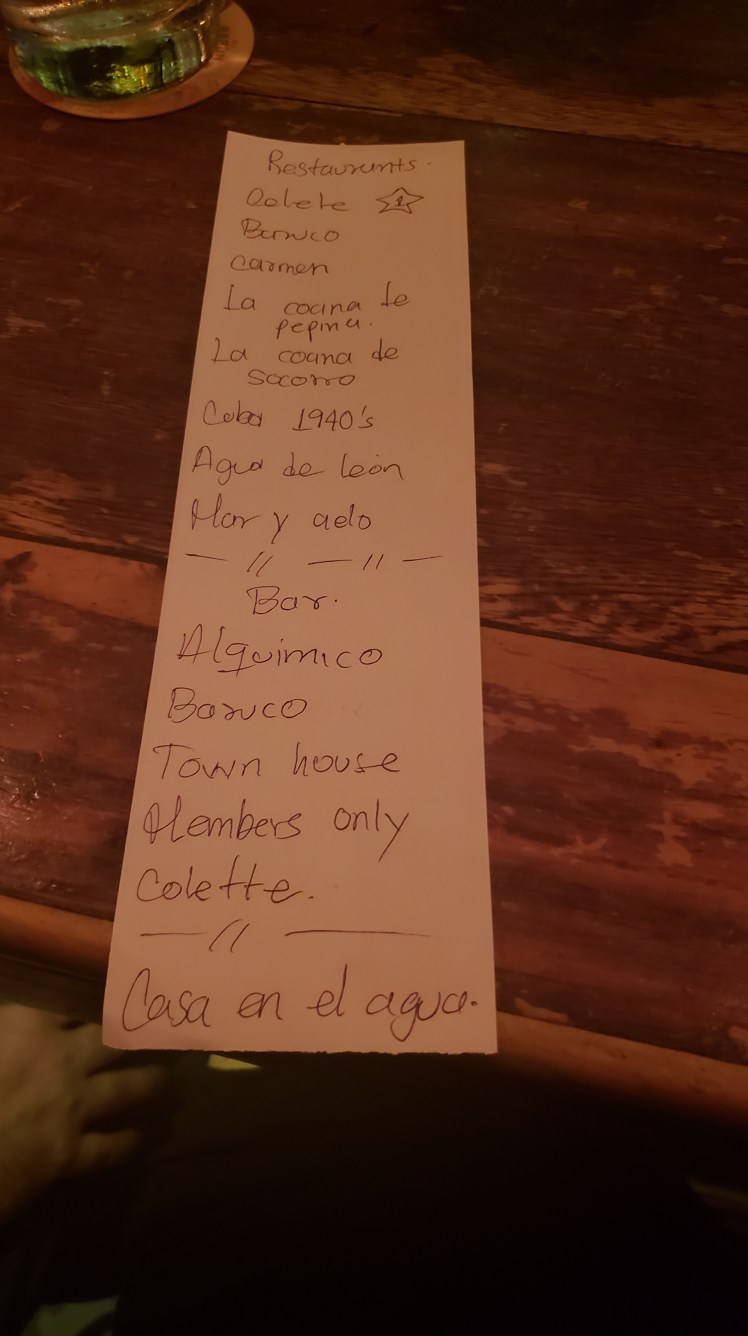 Restaurants.
Celele 1
Baruco
Carmen
La cocina de
pepina.
La cocina de
Socorro
Cuba 1940's
Agua de león
Mar y aelo
Bar.
Alquimico
Baruco
Town house
Members only
Colette.
Casa en el agua.